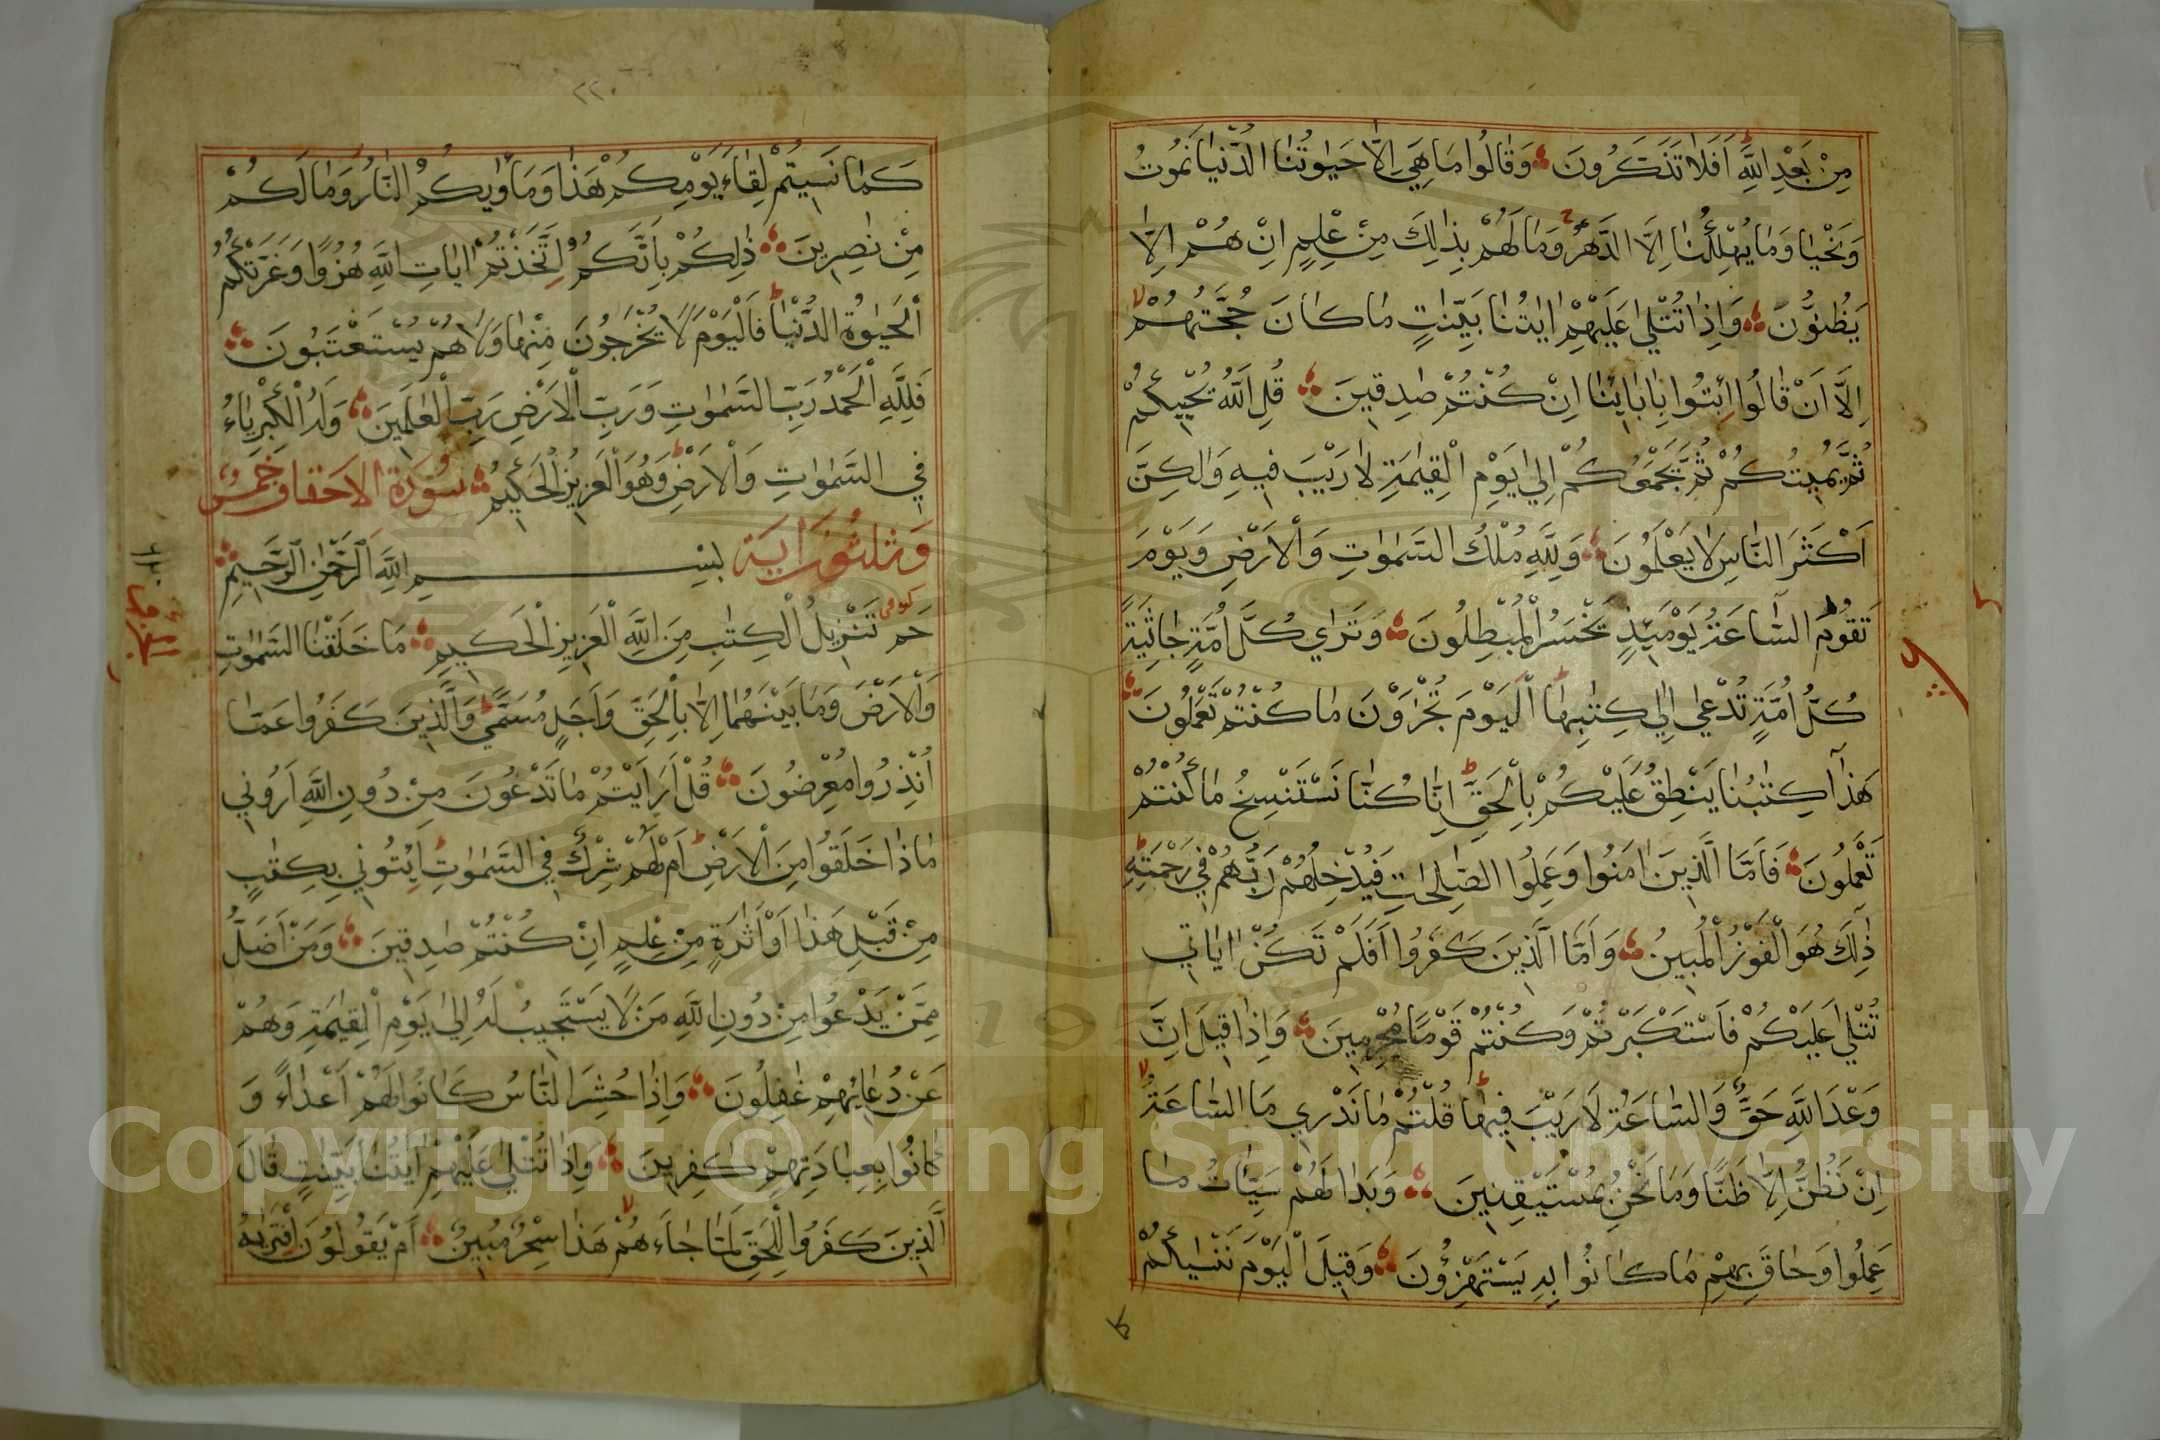 مِنْ بَعْدِ اللَّهِ اَفَلَا تَذَكَّرُونَ وَقَالُوا مَا هِيَ اِلَّا حَيٰوتُنَا الدُّنْيَا نَمُوتُ
وَنَحْيَا وَمَا يُهْلِكُنَا اِلَّا الدَّهْرُ وَمَا لَهُمْ بِذٰلِكَ مِنْ عِلْمٍ اِنْ هُمْ اِلَّا
يَظُنُّونَ وَاِذَا تُتْلٰى عَلَيْهِمْ اٰيٰتُنَا بَيِّنٰتٍ مَا كَانَ حُجَّتَهُمْ
اِلَّا اَنْ قَالُوا ائْتُوا بِاٰبَائِنَا اِنْ كُنْتُمْ صٰدِقِينَ قُلِ اللَّهُ يُحْيِيكُمْ
ثُمَّ يُمِيتُكُمْ ثُمَّ يَجْمَعُكُمْ اِلٰى يَوْمِ الْقِيٰمَةِ لَا رَيْبَ فِيهِ وَلٰكِنَّ
اَكْثَرَ النَّاسِ لَا يَعْلَمُونَ وَلِلَّهِ مُلْكُ السَّمٰوٰتِ وَالْاَرْضِ وَيَوْمَ
تَقُومُ السَّاعَةُ يَوْمَئِذٍ يَخْسَرُ الْمُبْطِلُونَ وَتَرٰى كُلَّ اُمَّةٍ جَاثِيَةً
كُلُّ اُمَّةٍ تُدْعٰى اِلٰى كِتٰبِهَا اَلْيَوْمَ تُجْزَوْنَ مَا كُنْتُمْ تَعْمَلُونَ
هٰذَا كِتٰبُنَا يَنْطِقُ عَلَيْكُمْ بِالْحَقِّ اِنَّا كُنَّا نَسْتَنْسِخُ مَا كُنْتُمْ
تَعْمَلُونَ فَاَمَّا الَّذِينَ اٰمَنُوا وَعَمِلُوا الصّٰلِحَاتِ فَيُدْخِلُهُمْ رَبُّهُمْ فِي رَحْمَتِهِ
ذٰلِكَ هُوَ الْفَوْزُ الْمُبِينُ وَاَمَّا الَّذِينَ كَفَرُوا اَفَلَمْ تَكُنْ اٰيَاتِي
تُتْلٰى عَلَيْكُمْ فَاسْتَكْبَرْتُمْ وَكُنْتُمْ قَوْمًا مُجْرِمِينَ وَاِذَا قِيلَ اِنَّ
وَعْدَ اللَّهِ حَقٌّ وَالسَّاعَةُ لَا رَيْبَ فِيهَا قُلْتُمْ مَا نَدْرِي مَا السَّاعَةُ
اِنْ نَظُنُّ اِلَّا ظَنًّا وَمَا نَحْنُ بِمُسْتَيْقِنِينَ وَبَدَا لَهُمْ سَيِّاٰتُ مَا
عَمِلُوا وَحَاقَ بِهِمْ مَا كَانُوا بِهِ يَسْتَهْزِؤُنَ وَقِيلَ الْيَوْمَ نَنْسٰيكُمْ
٢٢٠
كَمَا نَسِيتُمْ لِقَاءَ يَوْمِكُمْ هٰذَا وَمَأْوٰيكُمُ النَّارُ وَمَا لَكُمْ
مِنْ نٰصِرِينَ ذٰلِكُمْ بِاَنَّكُمُ اتَّخَذْتُمْ اٰيَاتِ اللَّهِ هُزُوًا وَغَرَّتْكُمُ
الْحَيٰوةُ الدُّنْيَا فَالْيَوْمَ لَا يُخْرَجُونَ مِنْهَا وَلَا هُمْ يُسْتَعْتَبُونَ
فَلِلَّهِ الْحَمْدُ رَبِّ السَّمٰوٰتِ وَرَبِّ الْاَرْضِ رَبِّ الْعٰلَمِينَ وَلَهُ الْكِبْرِيَاءُ
فِي السَّمٰوَاتِ وَالْاَرْضِ وَهُوَ الْعَزِيزُ الْحَكِيمُ سُورَةُ الاحقاف خمس
وَثلثون ايَة بِسْمِ اللَّهِ الرَّحْمٰنِ الرَّحِيمِ
حٰم كوفى تَنْزِيلُ الْكِتٰبِ مِنَ اللَّهِ الْعَزِيزِ الْحَكِيمِ مَا خَلَقْنَا السَّمٰوٰتِ
وَالْاَرْضَ وَمَا بَيْنَهُمَا اِلَّا بِالْحَقِّ وَاَجَلٍ مُسَمًّى وَالَّذِينَ كَفَرُوا عَمَّا
اُنْذِرُوا مُعْرِضُونَ قُلْ اَرَاَيْتُمْ مَا تَدْعُونَ مِنْ دُونِ اللَّهِ اَرُونِي
مَاذَا خَلَقُوا مِنَ الْاَرْضِ اَمْ لَهُمْ شِرْكٌ فِي السَّمٰوٰتِ اِيتُونِي بِكِتٰبٍ
مِنْ قَبْلِ هٰذَا اَوْ اَثٰرَةٍ مِنْ عِلْمٍ اِنْ كُنْتُمْ صٰدِقِينَ وَمَنْ اَضَلُّ
مِمَّنْ يَدْعُوا مِنْ دُونِ اللَّهِ مَنْ لَا يَسْتَجِيبُ لَهُ اِلٰى يَوْمِ الْقِيٰمَةِ وَهُمْ
عَنْ دُعَائِهِمْ غٰفِلُونَ وَاِذَا حُشِرَ النَّاسُ كَانُوا لَهُمْ اَعْدَاءً وَ
كَانُوا بِعِبَادَتِهِمْ كٰفِرِينَ وَاِذَا تُتْلٰى عَلَيْهِمْ اٰيٰتُنَا بَيِّنٰتٍ قَالَ
الَّذِينَ كَفَرُوا لِلْحَقِّ لَمَّا جَاءَهُمْ هٰذَا سِحْرٌ مُبِينٌ اَمْ يَقُولُونَ افْتَرٰيهُ
Copyright © King Saud University